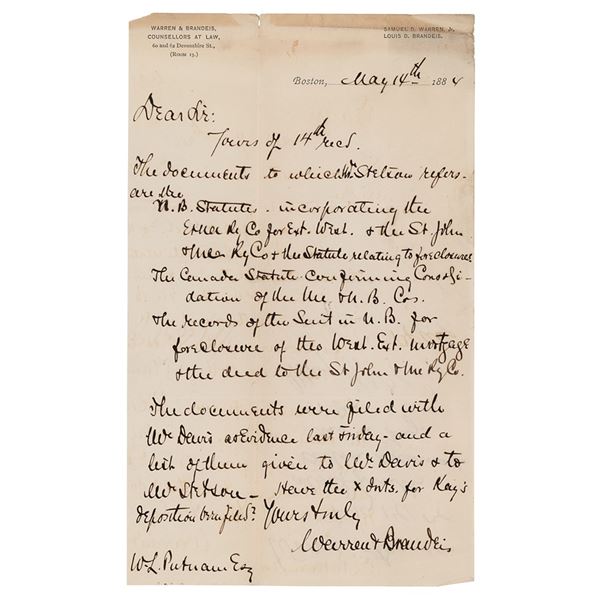 WARREN & BRANDEIS,
COUNSELLORS AT LAW,
60 and 62 Devonshire St.,
(ROOM 15.)
SAMUEL D. WARREN, Jr.
LOUIS D. BRANDEIS.
Boston, May 14th 1884
Dear Sir:
Yours of 14th recd.
The documents to which Mr Stetson refers
are the
N.B. Statutes incorporating the
E & NA Ry Co for Ext. West. & the St. John
& Me Ry Co & the Statute relating to foreclosures
The Canada Statute confirming Consoli-
dation of the Me & N.B. Cos.
The records of the Suit in N.B. for
foreclosure of the West. Ext. mortgage
& the deed to the St John & Me Ry Co.
The documents were filed with
Mr Davis as Evidence last Friday - and a
list of them given to Mr Davis & to
Mr Stetson - Have the X Ints. for Kay's
deposition been filed? Yours truly
Warren & Brandeis
W.L. Putnam Esq